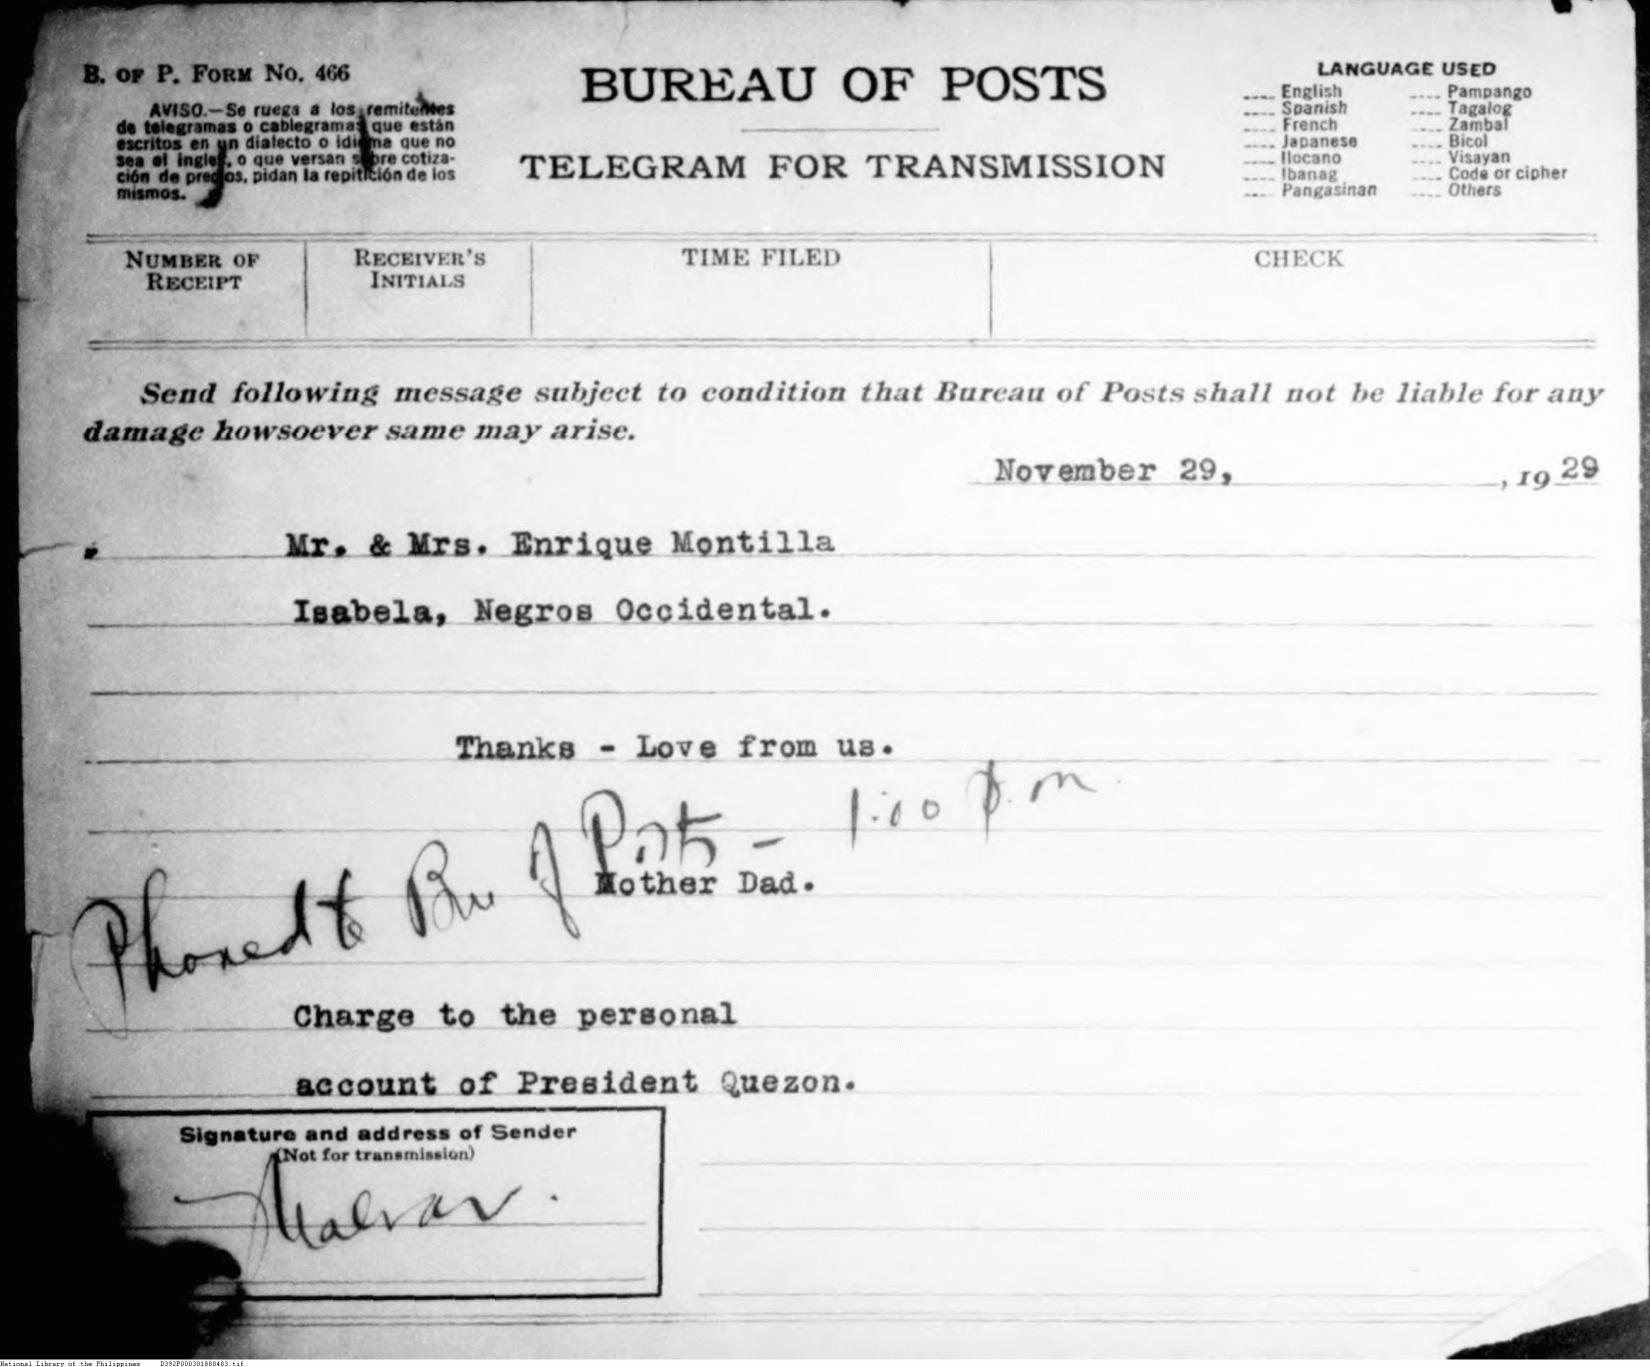 B. OF P. FORM NO. 466
AVISO.—Se ruega a los remitentes
de telegramas o cablegramas que están
escritos en un dialecto o idioma que no
sea el ingles, o que versan sobre cotiza-
ción de precios, pidan la repitición de los
mismos.
BUREAU OF POSTS
TELEGRAM FOR TRANSMISSION
LANGUAGE USED
.... English .... Pampango
.... Spanish .... Tagalog
.... French .... Zambal
.... Japanese .... Bicol
.... Ilocano .... Visayan
.... Ibanag .... Code or cipher
.... Pangasinan .... Others
NUMBER OF
RECEIPT
RECEIVER'S
INITIALS
TIME FILED
CHECK
Send following message subject to condition that Bureau of Posts shall not be liable for any
damage howsoever same may arise.
November 29, , 19 29
Mr. & Mrs. Enrique Montilla
Isabela, Negros Occidental.
Thanks - Love from us.
Phoned to Bu of Posts - 1:00 p.m
Mother Dad.
Charge to the personal
account of President Quezon.
Signature and address of Sender
(Not for transmission)
National Library of the Philippines D392P000301880483.tif